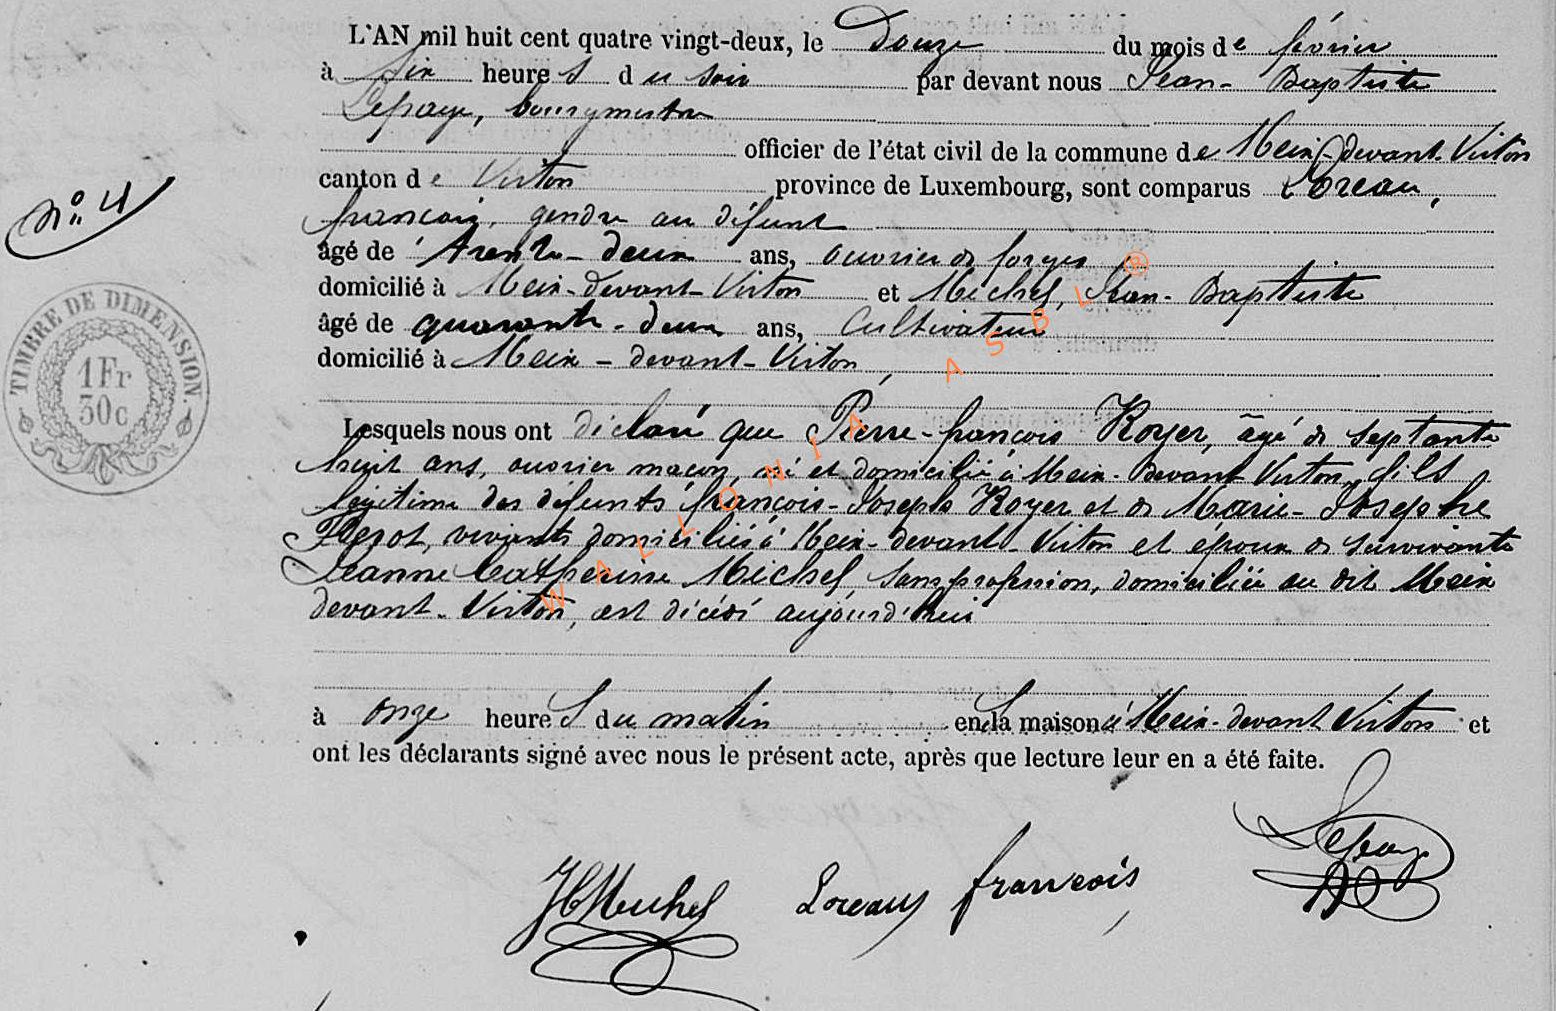 L'AN mil huit cent quatre vingt-deux, le Douze du mois de février
à six heures du soir par devant nous Jean-Baptiste
Lepage, bourgmestre
officier de l'état civil de la commune de Meix-devant-Virton
canton de Virton province de Luxembourg, sont comparus Loreau,
françois, gendre au défunt
N° 4
âgé de trente-deux ans, ouvrier de forges
domicilié à Meix-devant-Virton et Michel, Jean-Baptiste
âgé de quarante-deux ans, Cultivateur
domicilié à Meix-devant-Virton,
TIMBRE DE DIMENSION
1 Fr
30c
Lesquels nous ont déclaré que Pierre-françois Royer, âgé de septante
huit ans, ouvrier maçon, né et domicilié à Meix-devant Virton, fils
légitime des défunts françois-Joseph Royer et de Marie-Josephe
vivants domiciliés à Meix-devant-Virton et époux de survivante
Jeanne Catherine Michel sans profession, domiciliée au dit Meix
devant-Virton, est décédé aujourd'hui
à onze heures du matin en sa maison à Meix-devant Virton et
ont les déclarants signé avec nous le présent acte, après que lecture leur en a été faite.
JBMichel Loreau françois Lepage
WALLONIA ASBL ®